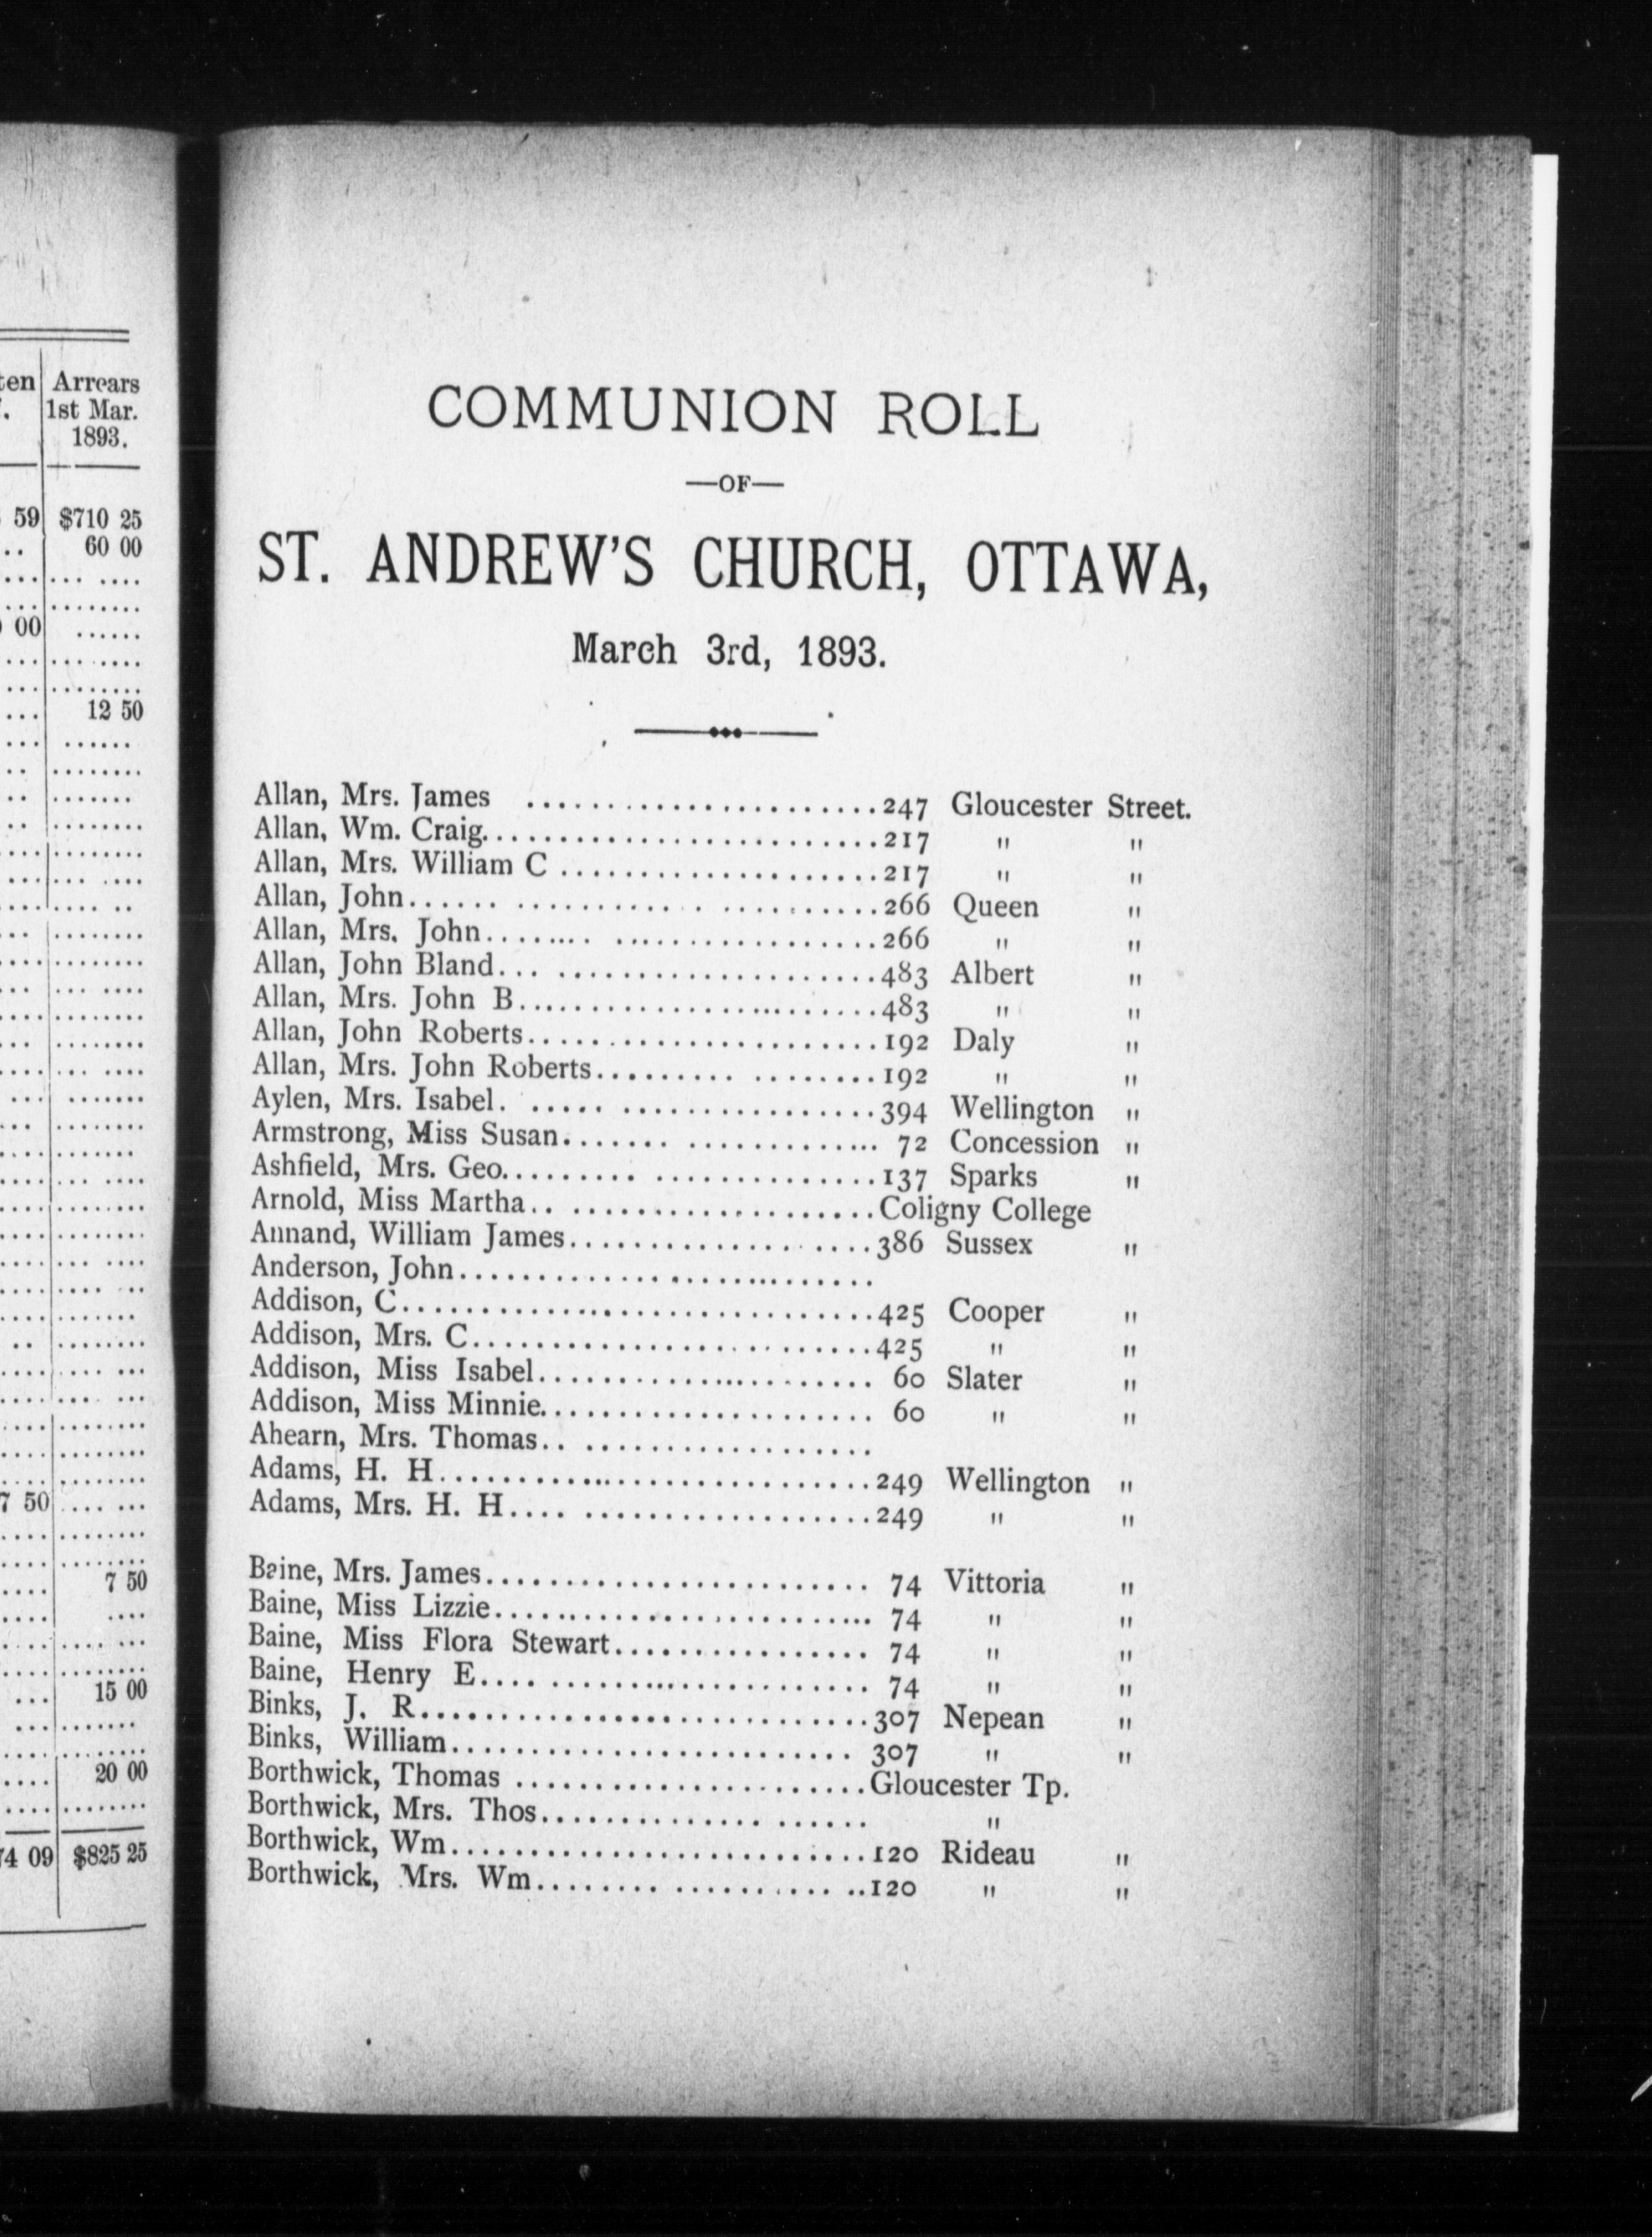 ten Arrears
1st Mar.
1893.
59 $710 25
60 00
00
12 50
7 50
7 50
15 00
20 00
74 09 $825 25
COMMUNION ROLL
—OF—
ST. ANDREW'S CHURCH, OTTAWA,
March 3rd, 1893.
Allan, Mrs. James ........................247 Gloucester Street.
Allan, Wm. Craig..........................217 " "
Allan, Mrs. William C .....................217 " "
Allan, John...... ........................266 Queen "
Allan, Mrs. John........ .................266 " "
Allan, John Bland... .....................483 Albert "
Allan, Mrs. John B........................483 " "
Allan, John Roberts.......................192 Daly "
Allan, Mrs. John Roberts......... ........192 " "
Aylen, Mrs. Isabel. ..... ................394 Wellington "
Armstrong, Miss Susan....... ............. 72 Concession "
Ashfield, Mrs. Geo......... ..............137 Sparks "
Arnold, Miss Martha.. ....................Coligny College
Annand, William James.....................386 Sussex "
Anderson, John............................
Addison, C................................425 Cooper "
Addison, Mrs. C...........................425 " "
Addison, Miss Isabel...................... 60 Slater "
Addison, Miss Minnie...................... 60 " "
Ahearn, Mrs. Thomas.. ....................
Adams, H. H...............................249 Wellington "
Adams, Mrs. H. H.... .....................249 " "
Baine, Mrs. James......................... 74 Vittoria "
Baine, Miss Lizzie........................ 74 " "
Baine, Miss Flora Stewart................. 74 " "
Baine, Henry E.... ....................... 74 " "
Binks, J. R...............................307 Nepean "
Binks, William............................ 307 " "
Borthwick, Thomas ........................Gloucester Tp.
Borthwick, Mrs. Thos............... ...... "
Borthwick, Wm.............................120 Rideau "
Borthwick, Mrs. Wm........ ...............120 " "